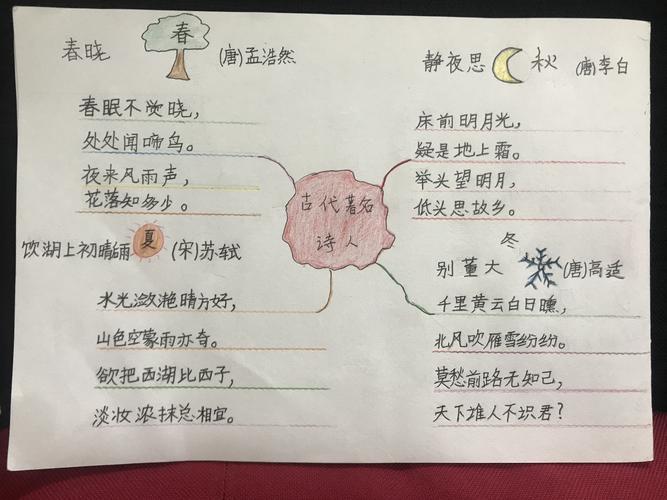 春晓 春 (唐)孟浩然
春眠不觉晓，
处处闻啼鸟。
夜来风雨声，
花落知多少。
静夜思 秋 (唐)李白
床前明月光，
疑是地上霜。
举头望明月，
低头思故乡。
古代著名
诗人
饮湖上初晴后雨 夏 (宋)苏轼
水光潋滟晴方好，
山色空蒙雨亦奇。
欲把西湖比西子，
淡妆浓抹总相宜。
冬
别董大 (唐)高适
千里黄云白日曛，
北风吹雁雪纷纷。
莫愁前路无知己，
天下谁人不识君？